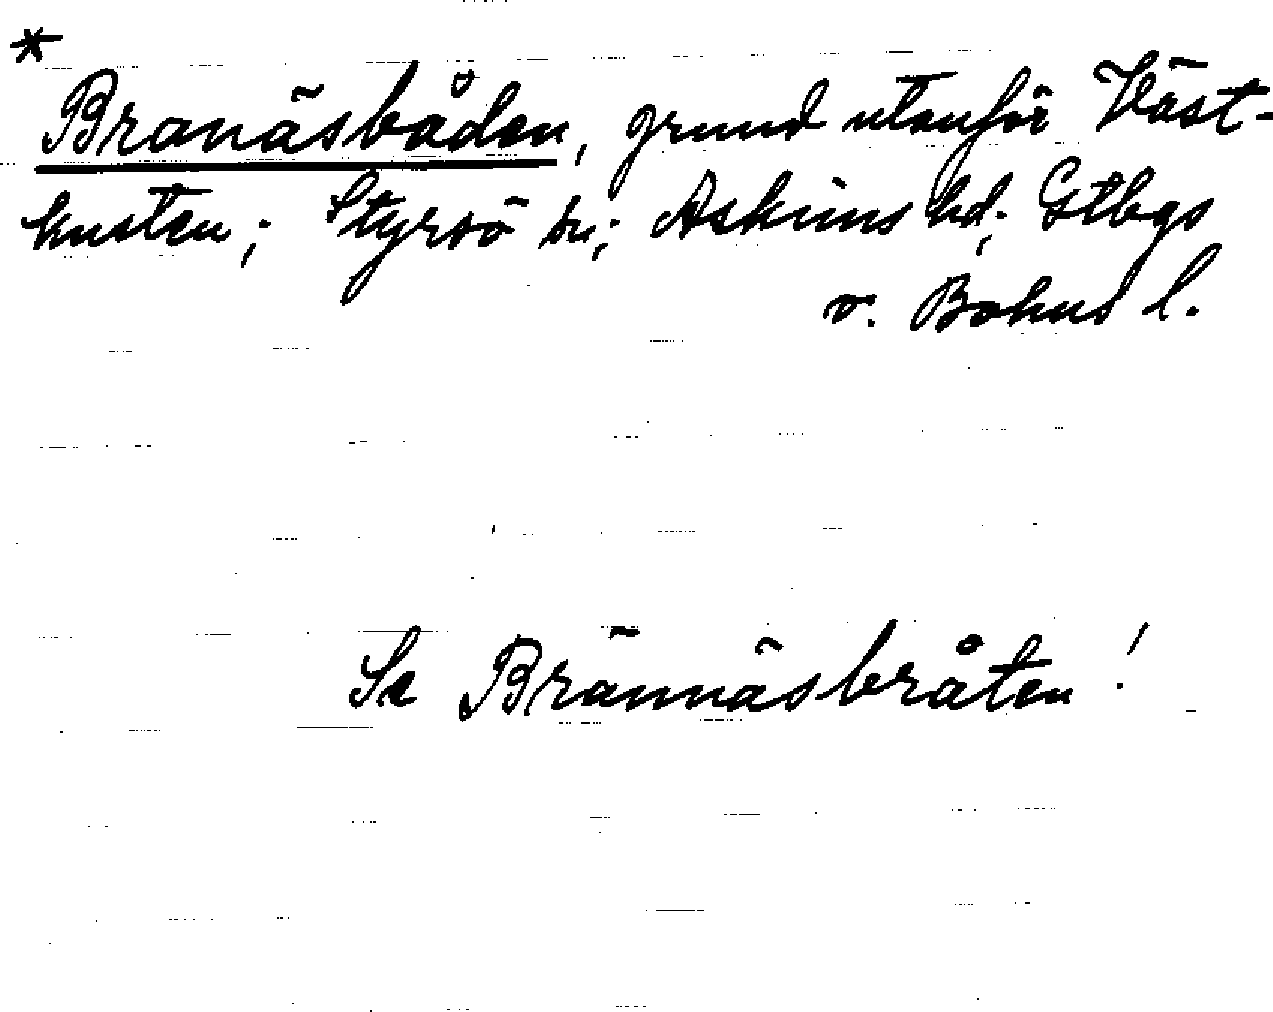 *
Branäsbåden, grund utanför Väst-
kusten; Styrsö sn; Askims hd; Gtbgs
o. Bohus l.
Se Brännäsbråten!